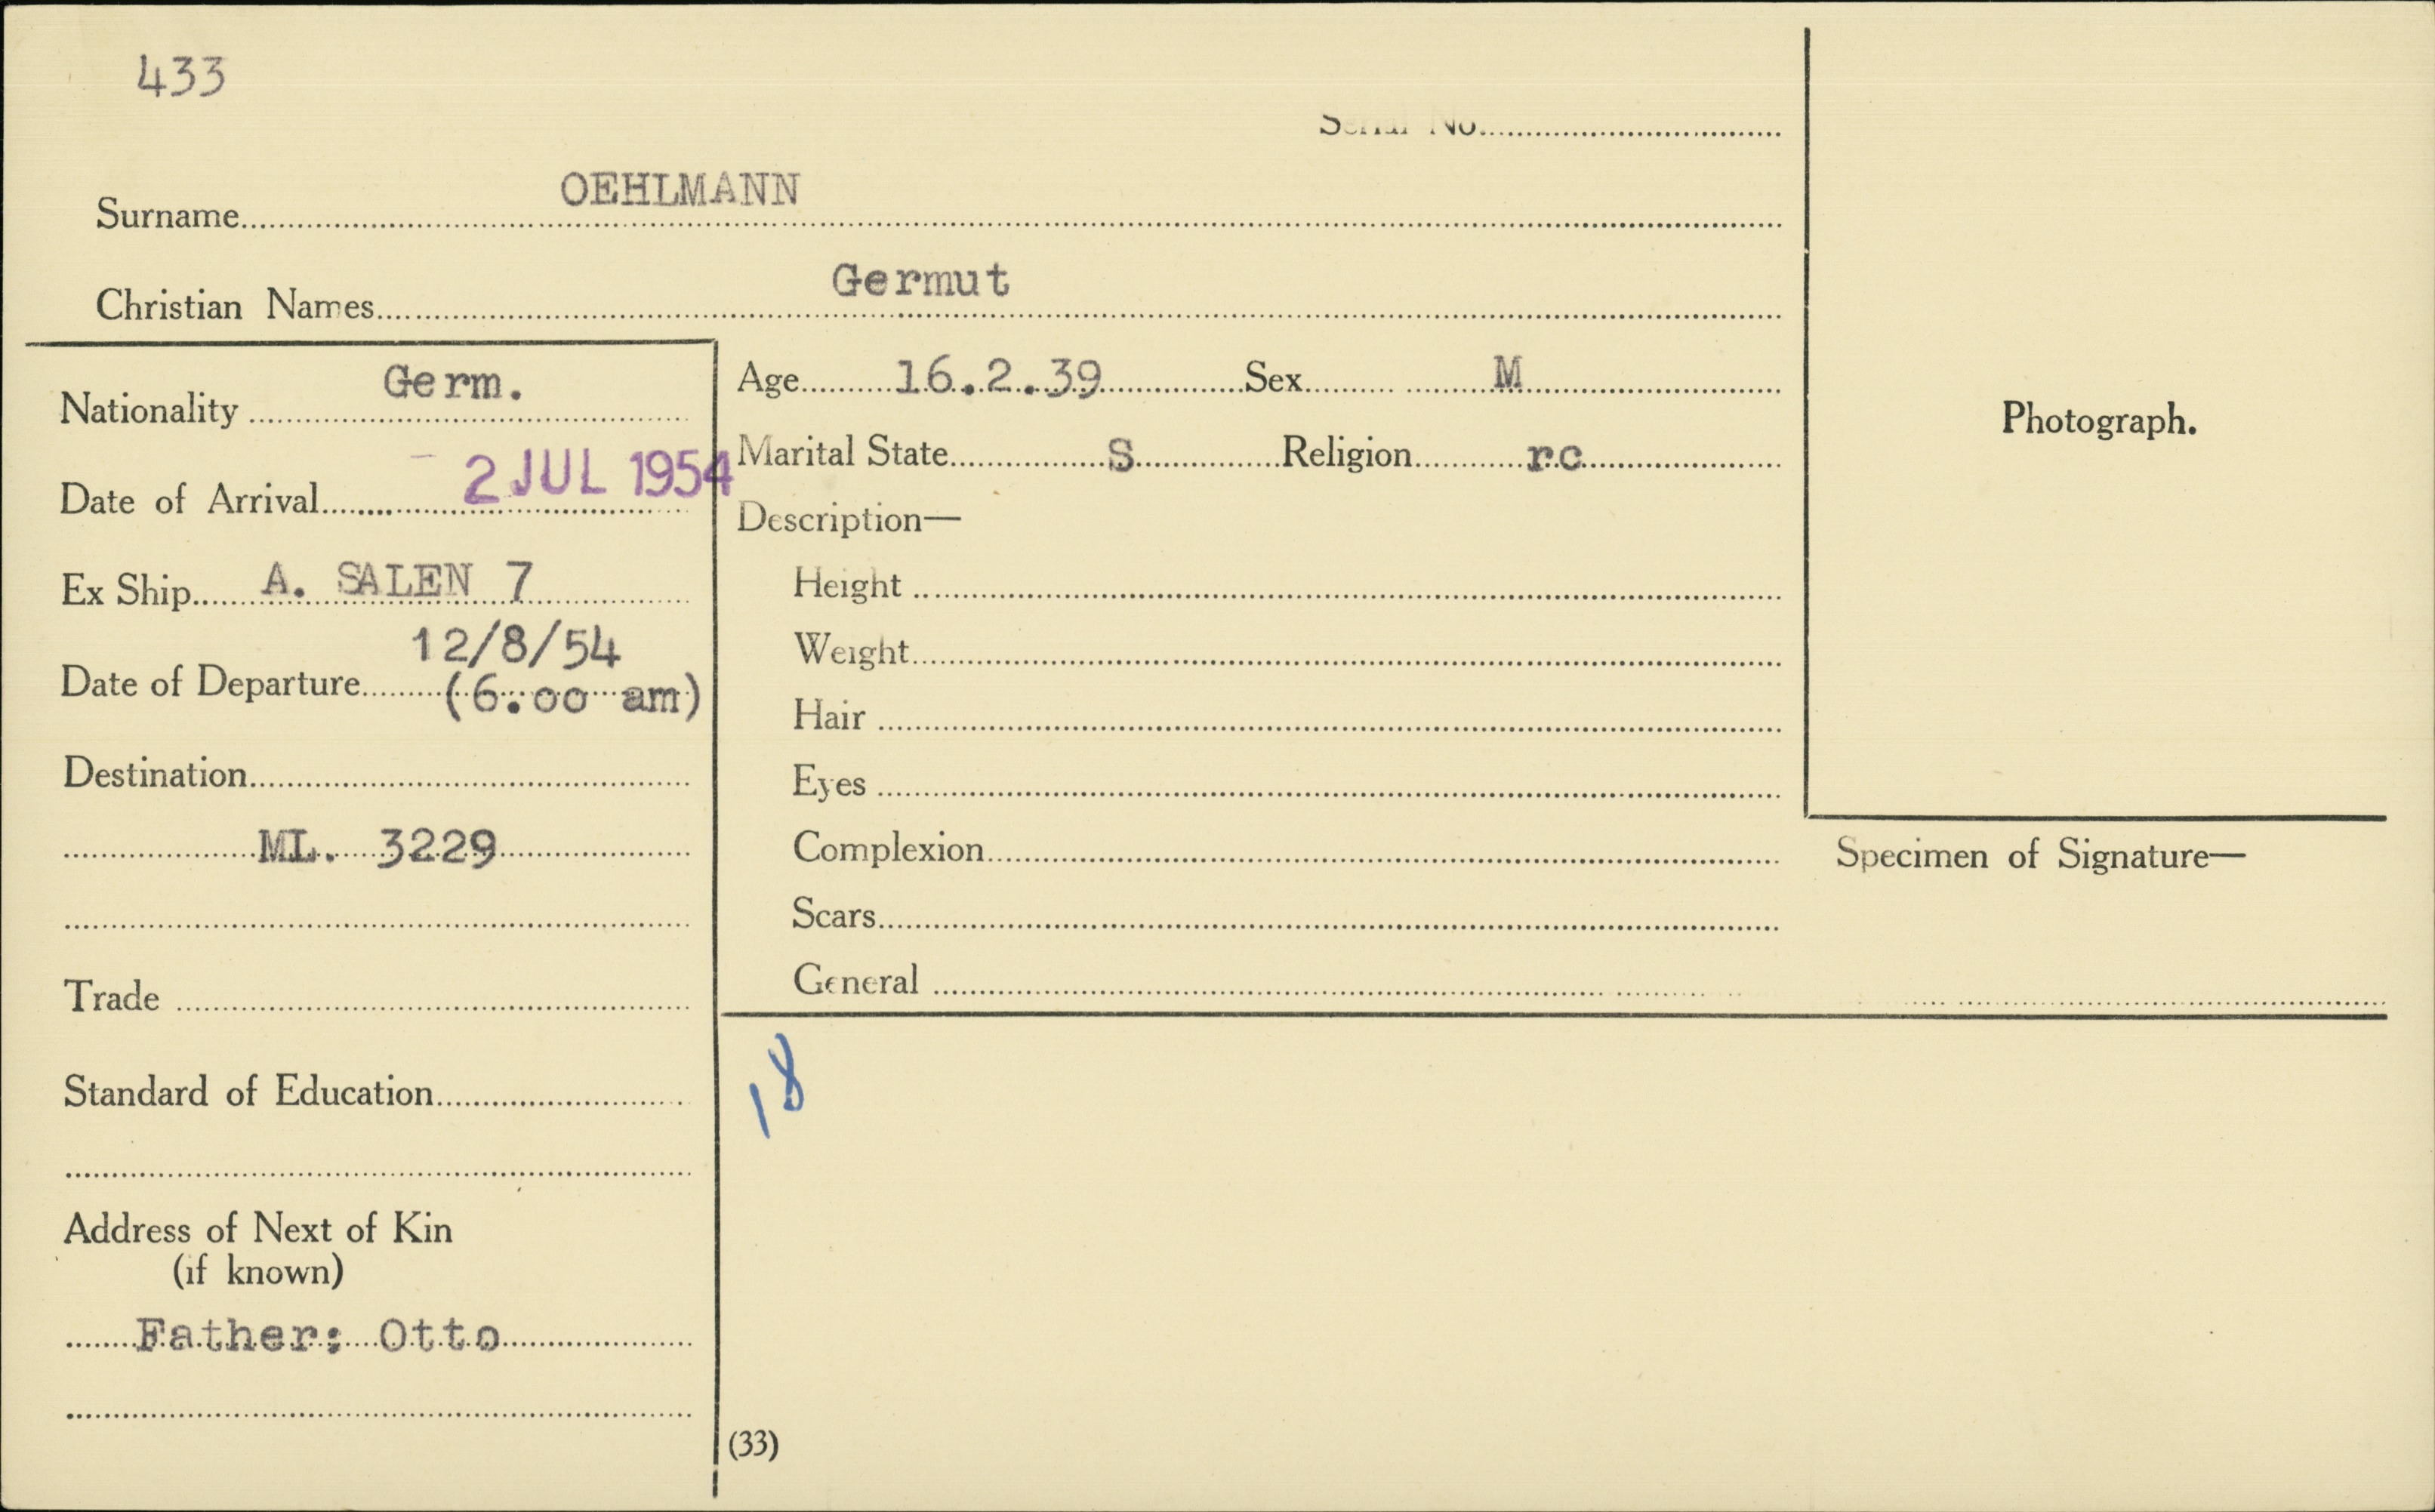 433
Serial No.
Surname OEHLMANN
Christian Names Germut
Nationality Germ.
Date of Arrival - 2 JUL 1954
Ex Ship A. SALEN 7
12/8/54
Date of Departure (6.00 am)
Destination
ML. 3229
Trade
Standard of Education
Address of Next of Kin
(if known)
Father: Otto
Age 16.2.39 Sex M
Marital State S Religion rc
Description—
Height
Weight
Hair
Eyes
Complexion
Scars
General
18
(33)
Photograph.
Specimen of Signature—